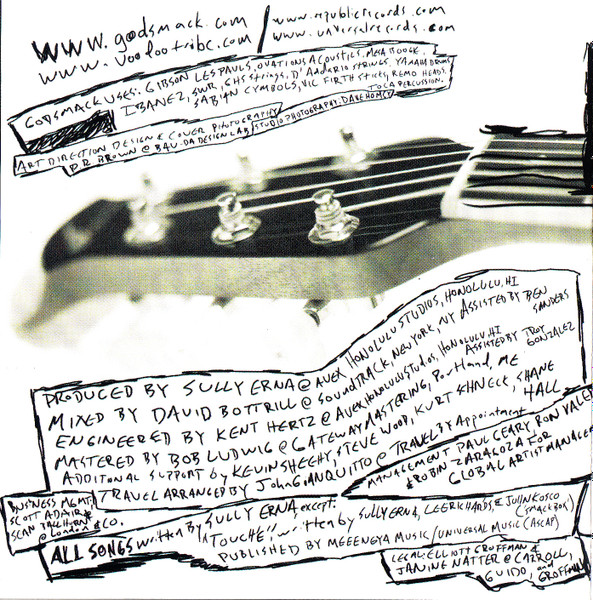 www.godsmack.com / www.republicrecords.com
www.voodootribe.com / www.universalrecords.com
GODSMACK USES: GIBSON LES PAULS, OVATIONS ACOUSTICS, MESA BOOGIE,
IBANEZ, SWR, GHS strings, D'Addario strings, YAMAHA DRUMS
SABIAN CYMBOLS, VIC FIRTH STICKS, REMO HEADS,
TOCA PERCUSSION.
ART DIRECTION DESIGN & COVER PHOTOGRAPHY
P.R. BROWN @ BAU-DA DESIGN LAB / STUDIO PHOTOGRAPHY: DAVE HOMCY
PRODUCED BY SULLY ERNA @ AVEX HONOLULU STUDIOS, HONOLULU, HI
MIXED BY DAVID BOTTRILL @ SOUNDTRACK, NEW YORK, NY ASSISTED BY BEN SANDERS
ENGINEERED BY KENT HERTZ @ AVEX HONOLULU STUDIOS, HONOLULU, HI ASSISTED BY TROY GONZALEZ
MASTERED BY BOB LUDWIG @ GATEWAY MASTERING, Portland, ME
ADDITONAL SUPPORT by KEVIN SHEEHY, STEVE WOOD, KURT SHNECK, SHANE HALL
TRAVEL ARRANGED BY JOHN GIANQUITTO @ TRAVEL BY Appointment
MANAGEMENT PAUL GEARY, RON VALE
& ROBIN ZARAGOZA FOR
GLOBAL ARTIST MANAGEE
BUSINESS MGMT:
SCOTT ADAIR &
@ LONDON & CO.
ALL SONGS written BY SULLY ERNA except:
"TOUCHÉ", written by SULLY ERNA, LEE RICHARDS, & JOHN KOSCO
(SMACKBOX)
PUBLISHED BY MEEENGYA MUSIC/UNIVERSAL MUSIC (ASCAP)
LEGAL: ELLIOTT GROFFMAN &
JANINE NATTER @ CARROLL,
GUIDO, and GROFFMAN